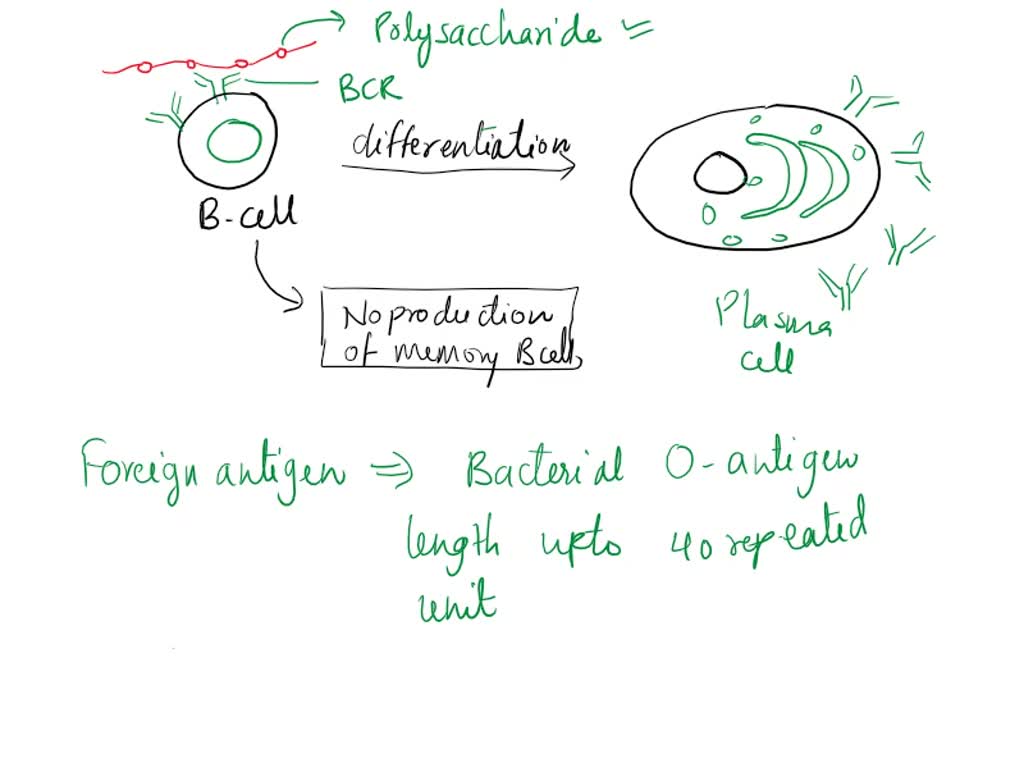 Polysaccharide =
BCR
differentiation
B-cell
No production
of memory B cells
Plasma
cell
Foreign antigen ⇒ Bacterial O-antigen
length upto 40 repeated
unit